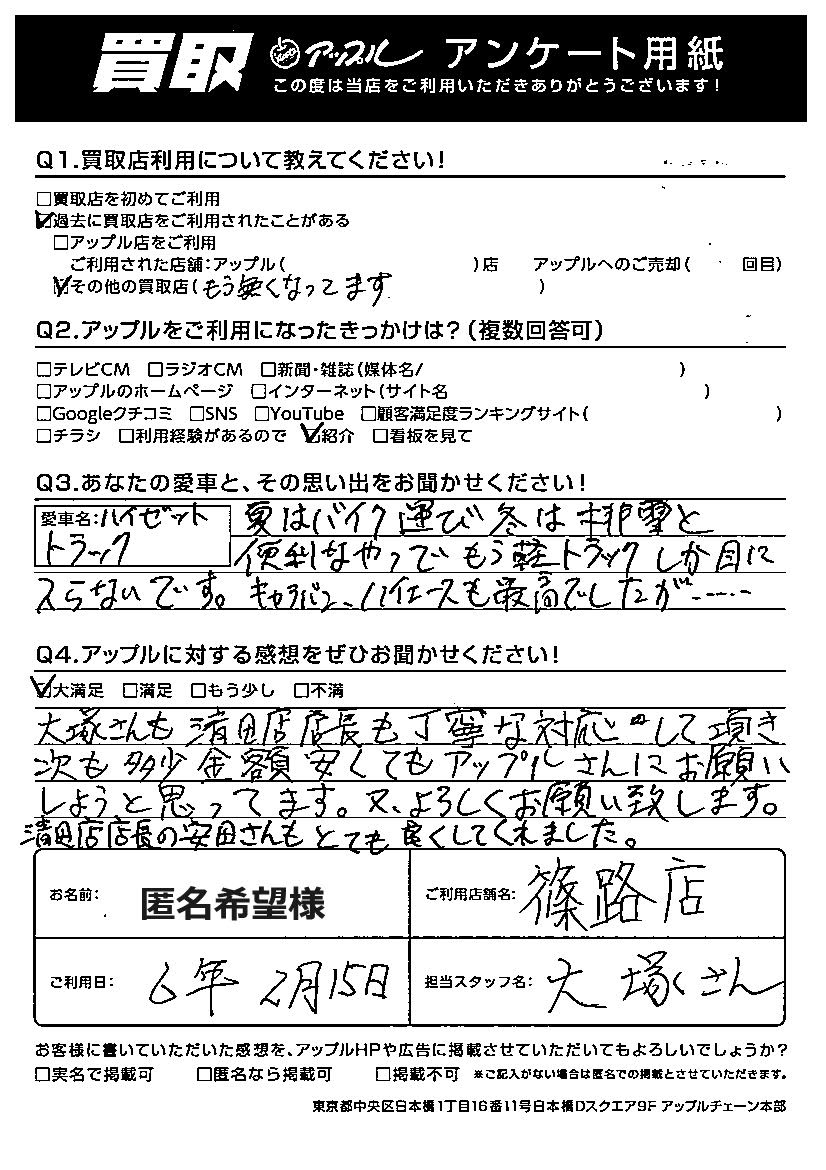 買取 アップル アンケート用紙
この度は当店をご利用いただきありがとうございます！
Q1.買取店利用について教えてください！
□買取店を初めてご利用
☑過去に買取店をご利用されたことがある
□アップル店をご利用
ご利用された店舗:アップル( )店 アップルへのご売却( 回目)
☑その他の買取店(もう無くなってます )
Q2.アップルをご利用になったきっかけは？(複数回答可)
□テレビCM □ラジオCM □新聞・雑誌(媒体名/ )
□アップルのホームページ □インターネット(サイト名 )
□Googleクチコミ □SNS □YouTube □顧客満足度ランキングサイト( )
□チラシ □利用経験があるので ☑紹介 □看板を見て
Q3.あなたの愛車と、その思い出をお聞かせください！
愛車名:ハイゼット
トラック
夏はバイク運び冬は排雪と
便利なやつでもう軽トラックしか目に
入らないです。キャラバン、ハイエースも最高でしたが……
Q4.アップルに対する感想をぜひお聞かせください！
☑大満足 □満足 □もう少し □不満
大塚さんも清田店店長も丁寧な対応をして頂き
次も多少金額安くてもアップルさんにお願い
しようと思ってます。又、よろしくお願い致します。
清田店店長の安田さんもとても良くしてくれました。
お名前: 匿名希望様
ご利用店舗名: 篠路店
ご利用日: 6年 2月15日
担当スタッフ名: 大塚くさん
お客様に書いていただいた感想を、アップルHPや広告に掲載させていただいてもよろしいでしょうか？
□実名で掲載可 □匿名なら掲載可 □掲載不可 ※ご記入がない場合は匿名での掲載とさせていただきます。
東京都中央区日本橋1丁目16番11号日本橋Dスクエア9F アップルチェーン本部